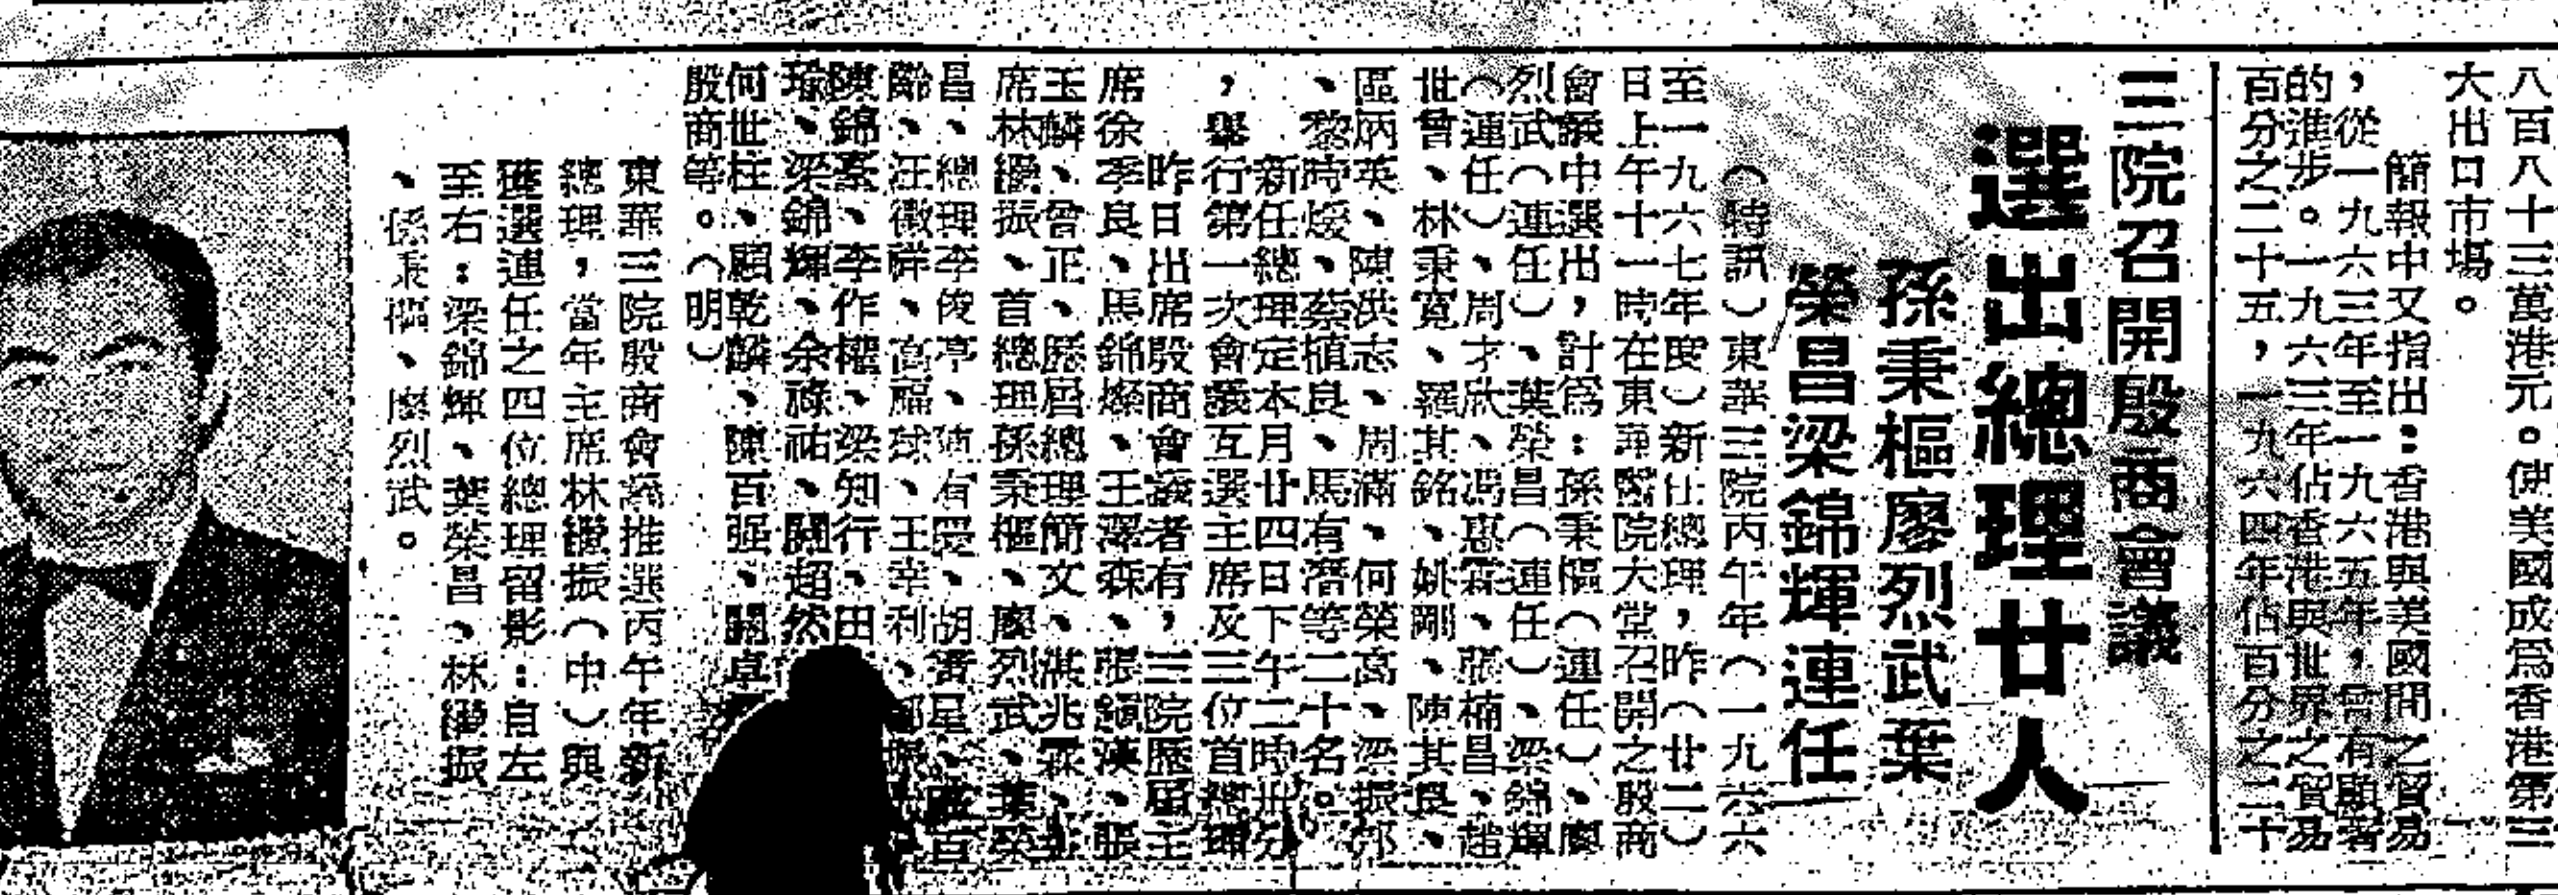 八百八十三萬港元。使美國成爲香港第三
大出口市場。
簡報中又指出：香港與美國間之貿易
，從一九六三年至一九六五年，曾有顯著
的進步。一九六三年佔香港與世界之貿易
百分之二十五，一九六四年佔百分之二十
三院召開殷商會議
選出總理廿人
孫秉樞廖烈武葉
榮昌梁錦輝連任
（特訊）東華三院丙午年（一九六六
至一九六七年度）新任總理，昨（廿二）
日上午十一時在東華醫院大堂召開之殷商
會議中選出，計爲：孫秉樞（連任）、廖
烈武（連任）、葉榮昌（連任）、梁錦輝
（連任）、周才欣、馮惠霖、張楠昌、趙
世曾、林秉寬、羅其銘、姚剛、陳其良、
區炳英、陳洪志、周滿、何榮高、梁振邦
、黎時煖、蔡植良、馬有潛等二十名。
新任總理定本月廿四日下午二時卅分
，舉行第一次會議互選主席及三位首總理
昨日出席殷商會議者有，三院歷屆主
席徐季良、馬錦燦、王澤森、張鎮漢、張
玉麟、曾正、歷屆總理簡文、洪兆霖、
席林繼振、首總理孫秉樞、廖烈武、葉榮
昌、總理李俊亭、陳有慶、胡
齡、汪徵祥、高福球、王幸利、
陳錦泰、李作權、梁知行、田
瑜、梁錦輝、余祿祐、關超然
何世柱、顧乾麟、陳百强、關卓
殷商等。（明）
東華三院殷商會議推選丙午年新
總理，當年主席林繼振（中）與
獲選連任之四位總理留影：自左
至右：梁錦輝、葉榮昌、林繼振
、孫秉樞、廖烈武。